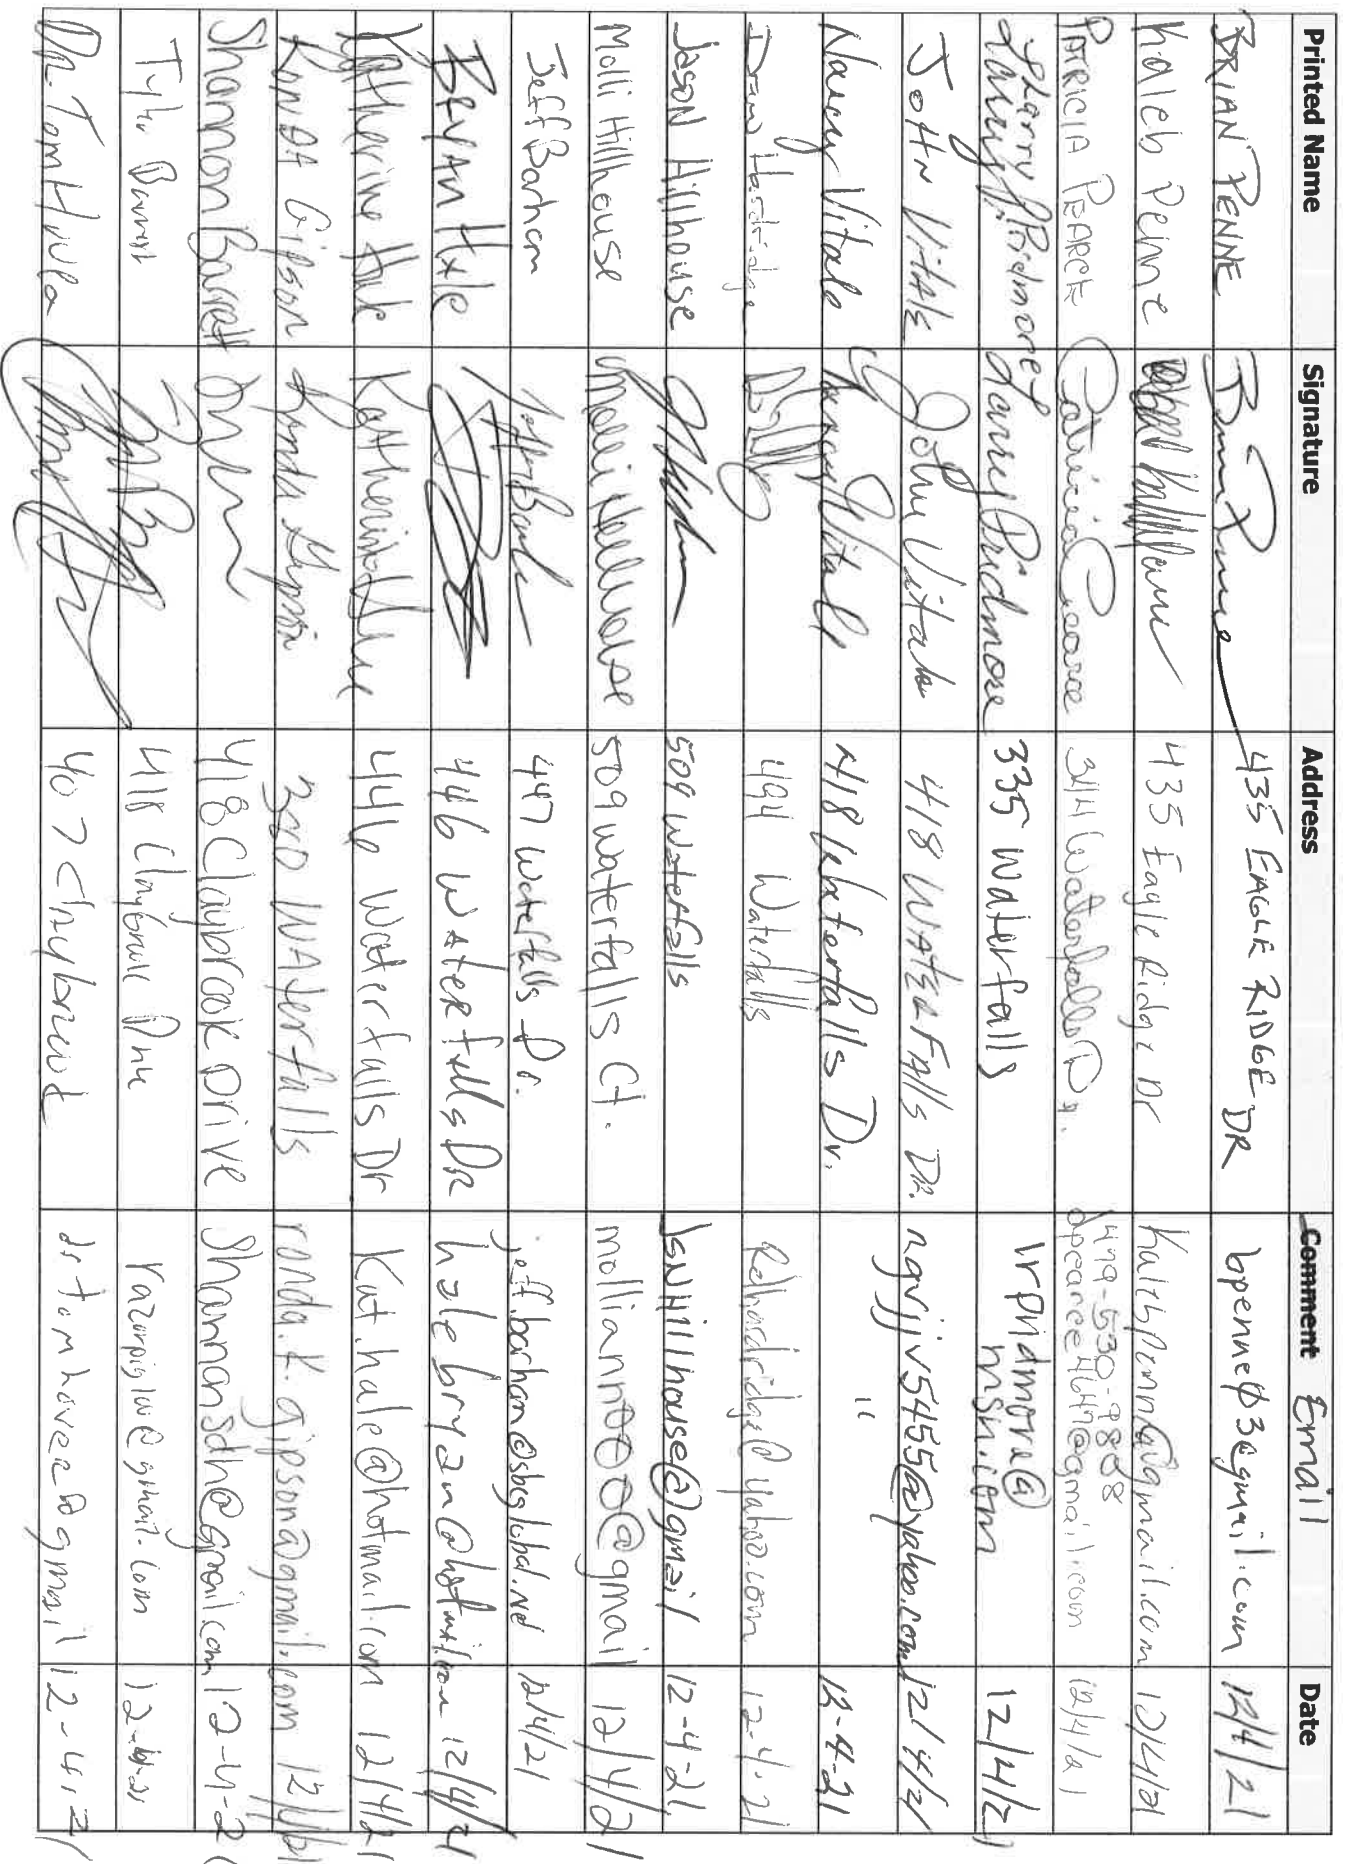 Printed Name Signature Address Comment Email Date
BRIAN PENNE 435 EAGLE RIDGE DR bpenne03@gmail.com 12/4/21
Kaleb Penne 435 Eagle Ridge Dr 12/4/21
PATRICIA PEARCE Patricia Pearce 344 Waterfalls Dr. 479-530-9888
dpearce4647@gmail.com 12/4/21
Larry Pridmore Larry Pridmore 335 Waterfalls lrpridmore@
msn.com 12/4/21
JOHN VITALE John Vitale 418 WATERFAlls DR. ngvjjv5455@yahoo.com 12/4/21
Nancy Vitale Nancy Vitale 418 Waterfalls Dr. " 12-4-21
494 Waterfalls 12-4-21
Jason Hillhouse 509 Waterfalls JsNHillhouse@gmail 12-4-21
Molli Hillhouse Molli Hillhouse 509 Waterfalls Ct. molliann00@gmail 12/4/21
Jeff Barham 447 Waterfalls Dr. jeff.barham@sbcglobal.net 12/4/21
BRYAN Hale 446 Waterfalls DR halebryan@hotmail.com 12/4/21
Katherine Hale Katherine Hale 446 Waterfalls Dr Kat.hale@hotmail.com 12/4/21
RONDA Gipson Ronda Gipson 320 WAterfalls ronda.k.gipson@gmail.com 12/4/21
Shannon Barrett 418 Claybrook Drive Shannonsdh@gmail.com 12-4-21
418 Drive 12-4-21
Dr. Tom Hoover 407 12-4-21